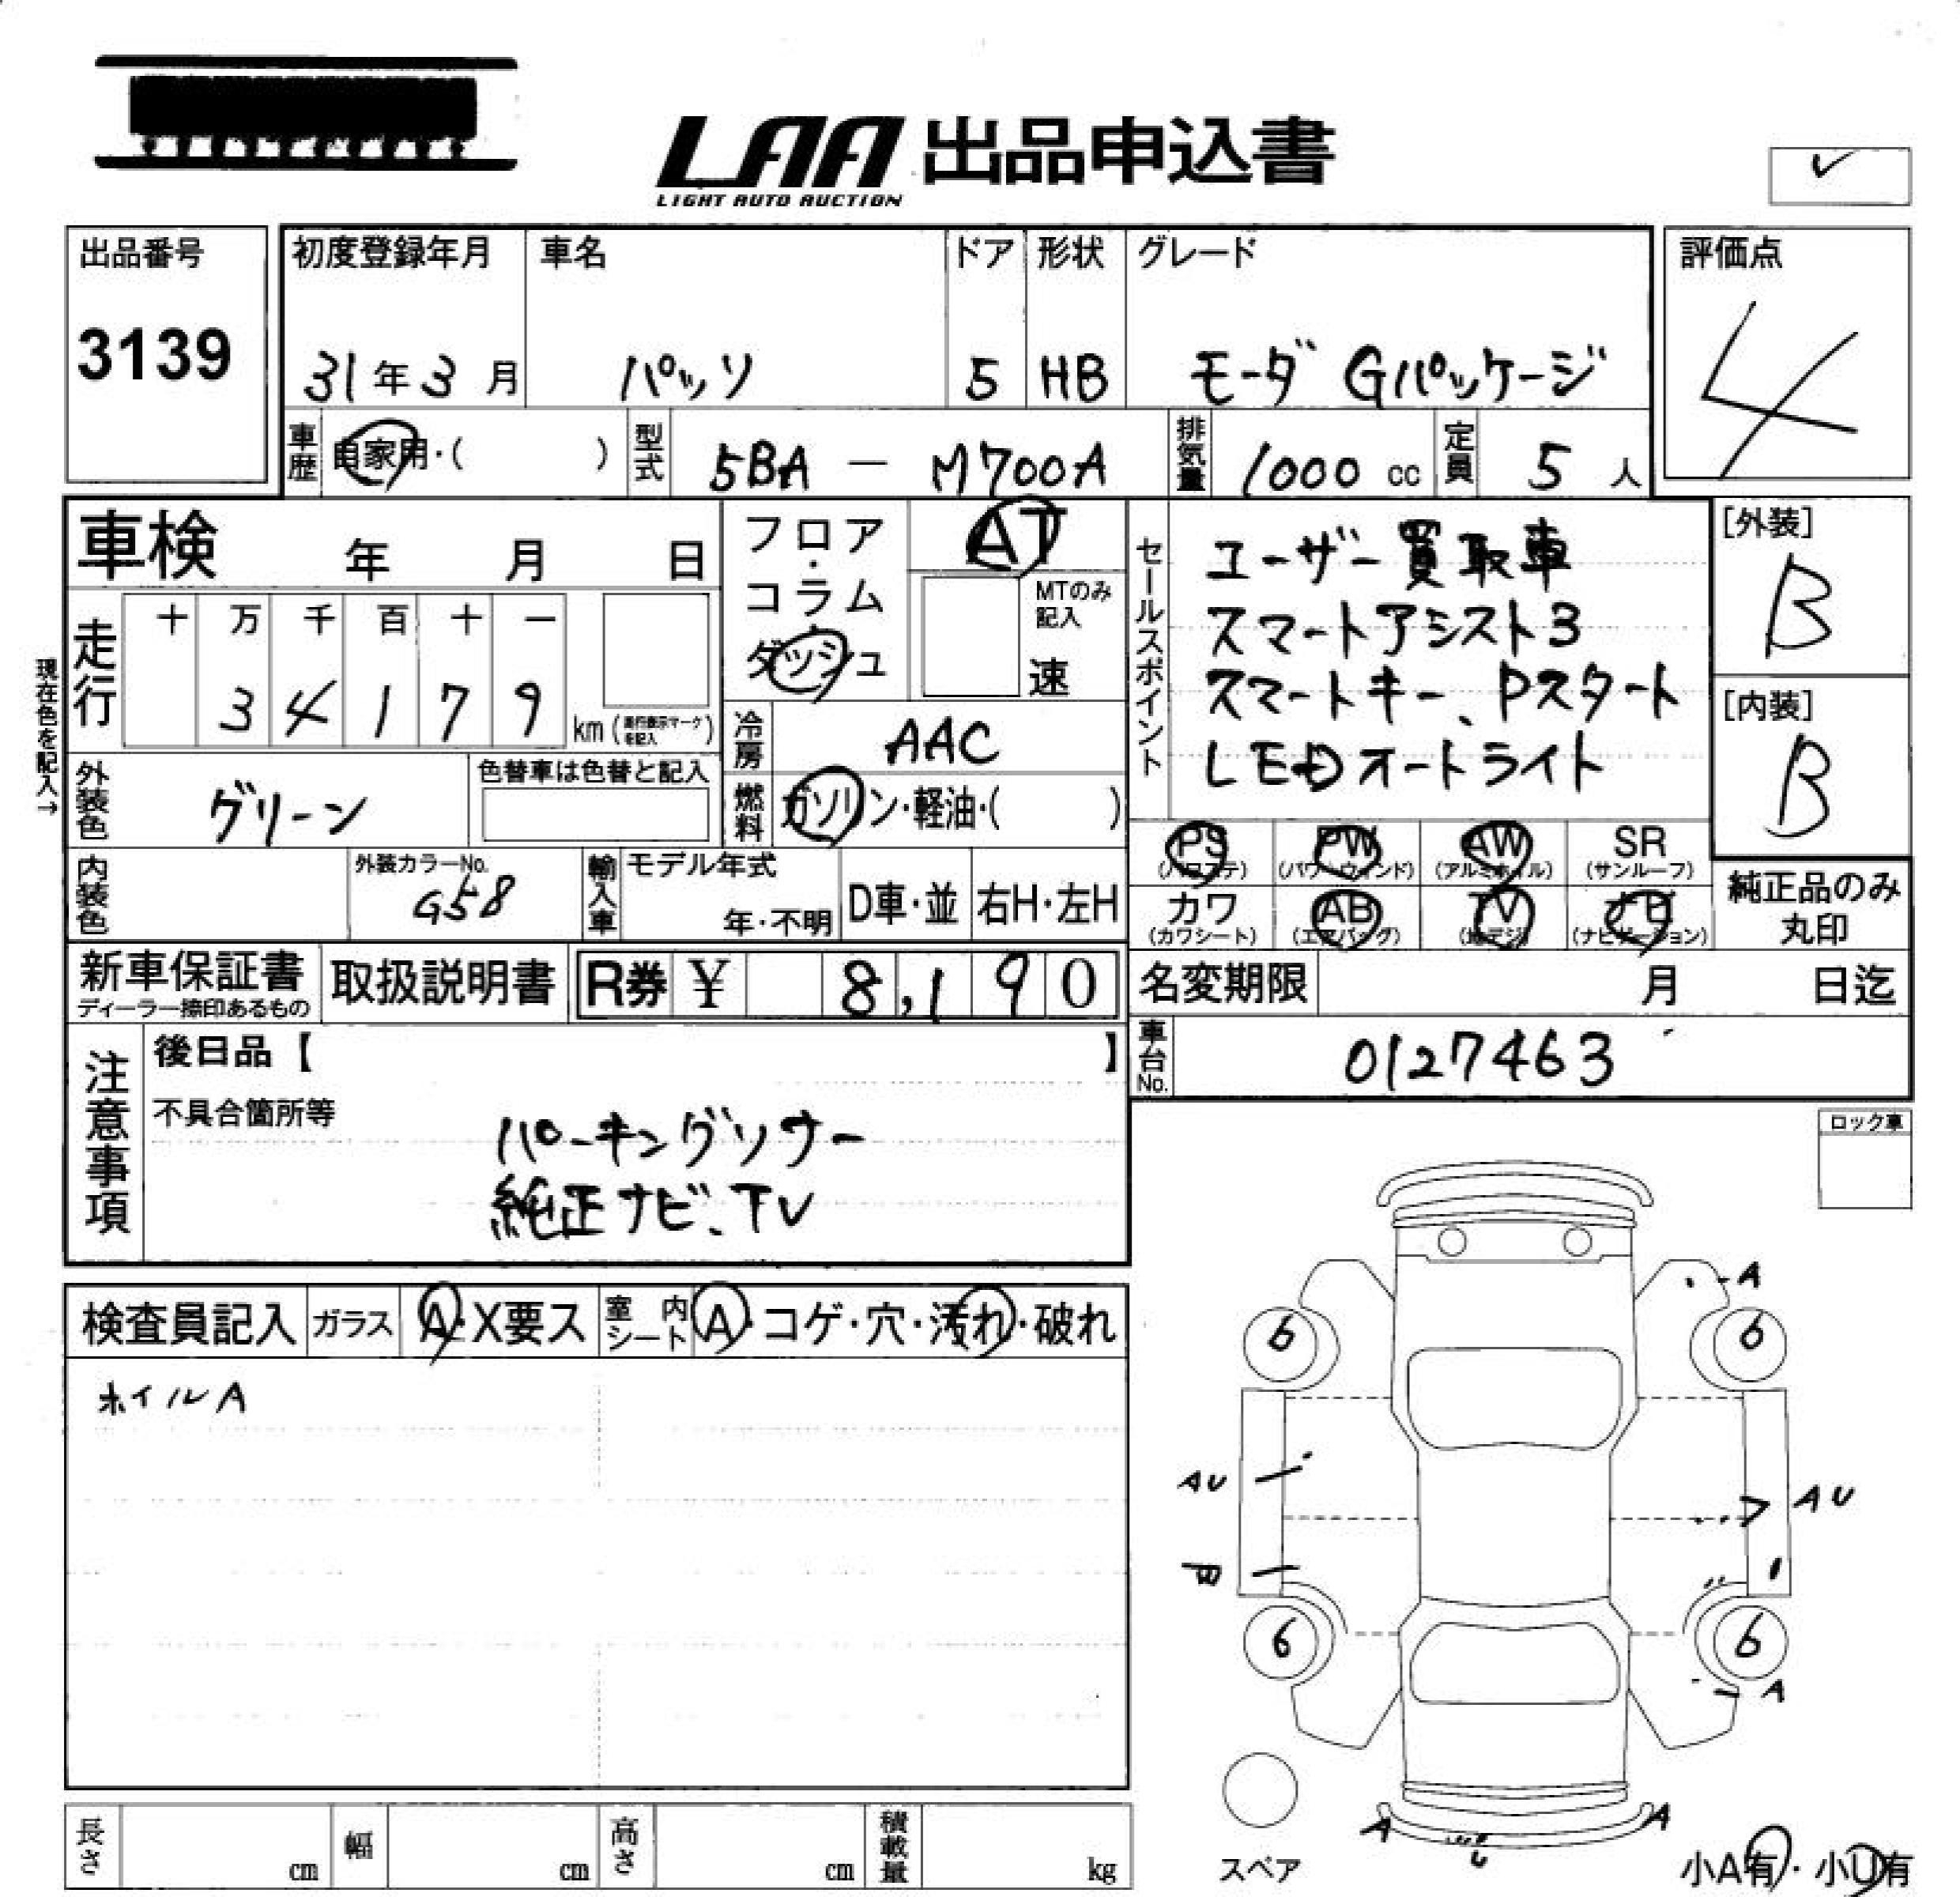 LAA 出品申込書
LIGHT AUTO AUCTION
出品番号
3139
初度登録年月
31年3月
車名
パッソ
ドア
5
形状
HB
グレード
モーダ Gパッケージ
評価点
4
車歴
自家用・( )
型式
5BA － M700A
排気量
1000 cc
定員
5 人
車検 年 月 日
現在色を記入→
走行
十 万 千 百 十 一
3 4 1 7 9
km (走行表示マークを記入)
フロア・コラム・ダッシュ
AT
MTのみ記入
速
冷房
AAC
燃料
ガソリン・軽油・( )
外装色
グリーン
色替車は色替と記入
内装色
外装カラーNo.
G58
輸入車
モデル年式
年・不明
D車・並
右H・左H
セールスポイント
ユーザー買取車
スマートアシスト3
スマートキー、Pスタート
LEDオートライト
[外装]
B
[内装]
B
PS (パワステ)
PW (パワーウィンド)
AW (アルミホイル)
SR (サンルーフ)
カワ (カワシート)
AB (エアバッグ)
TV (地デジ)
ナビ (ナビゲーション)
純正品のみ丸印
新車保証書
ディーラー捺印あるもの
取扱説明書
R券 ¥ 8,190
名変期限 月 日迄
車台No.
0127463
注意事項
後日品【 】
不具合箇所等
パーキングソナー
純正ナビ、TV
ロック車
検査員記入
ガラス
A・X要ス
室内シート
A・コゲ・穴・汚れ・破れ
ホイルA
A
6
6
AU
AU
B
6
6
A
A
A
U
スペア
小A有・小U有
長さ cm
幅 cm
高さ cm
積載量 kg